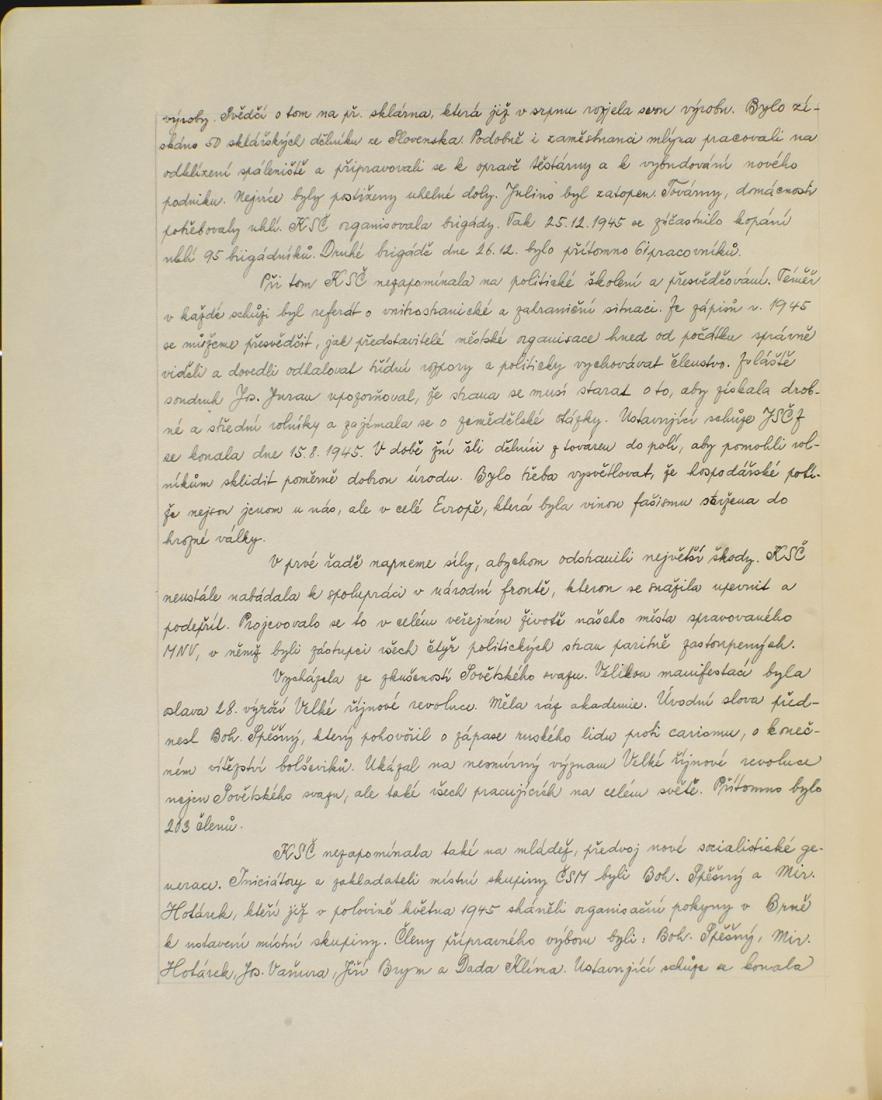 výroby. Svědčí o tom na př. sklárna, která již v srpnu rozjela svou výrobu. Bylo zí-
skáno 50 sklářských dělníku ze Slovenska. Podobně i zaměstnanci mlýna pracovali na
odklizení spáleniště a připravovali se k opravě těstárny a k vybudování nového
podniku. Nejvíce byly postiženy uhelné doly. Julius byl zatopen. Továrny, domácnosti
potřebovaly uhlí. KSČ organisovala brigády. Tak 25.12.1945 se zúčastnilo kopání
uhlí 95 brigádníků. Druhé brigádě dne 26.12. bylo přítomno 61 pracovníků.
Při tom KSČ nezapomínala na politické školení a přesvědčování. Téměř
v každé schůzi byl referát o vnitrostranické a zahraniční situaci. Ze zápisů r. 1945
se můžeme přesvědčit, jak představitelé městské organisace hned od počátku správně
viděli a dovedli odhalovat třídní rozpory a politicky vychovávat členstvo. Zvláště
soudruh Jos. Juran upozorňoval, že strana se musí starat o to, aby získala drob-
né a střední rolníky a zajímala se o zemědělské otázky. Ustavující schůze JSČZ
se konala dne 15.8.1945. V době žní šli dělníci z továren do polí, aby pomohli rol-
níkům sklidit poměrně dobrou úrodu. Bylo třeba vysvětlovat, že hospodářské potí-
že nejsou jenom u nás, ale v celé Evropě, která byla vinou fašismu stržena do
hrozné války.
V prvé řadě napneme síly, abychom odstranili největší škody. KSČ
neustále nabádala k spolupráci v národní frontě, kterou se snažila upevnit a
podepřít. Projevovalo se to v celém veřejném životě našeho města spravovaného
MNV, v němž byli zástupci všech čtyř politických stran paritně zastoupených.
Vycházela ze zkušeností Sovětského svazu. Velikou manifestací byla
oslava 28. výročí Velké říjnové revoluce. Měla ráz akademie. Úvodní slova před-
nesl Boh. Spěšný, který pohovořil o zápase ruského lidu proti carismu, o koneč-
ném vítězství bolševiků. Ukázal na nesmírný význam Velké říjnové revoluce
nejen Sovětského svazu, ale také všech pracujících na celém světě. Přítomno bylo
203 členů.
KSČ nezapomínala také na mládež, předvoj nové socialistické ge-
nerace. Iniciátory a zakladateli místní skupiny ČSM byli Boh. Spěšný a Mir.
Hotárek, kteří již v polovině května 1945 sháněli organisační pokyny v Brně
k ustavení místní skupiny. Členy přípravného výboru byli: Boh. Spěšný, Mir.
Hotárek, Jos. Vaňura, Jiří Brym a Dada Klíma. Ustavující schůze se konala